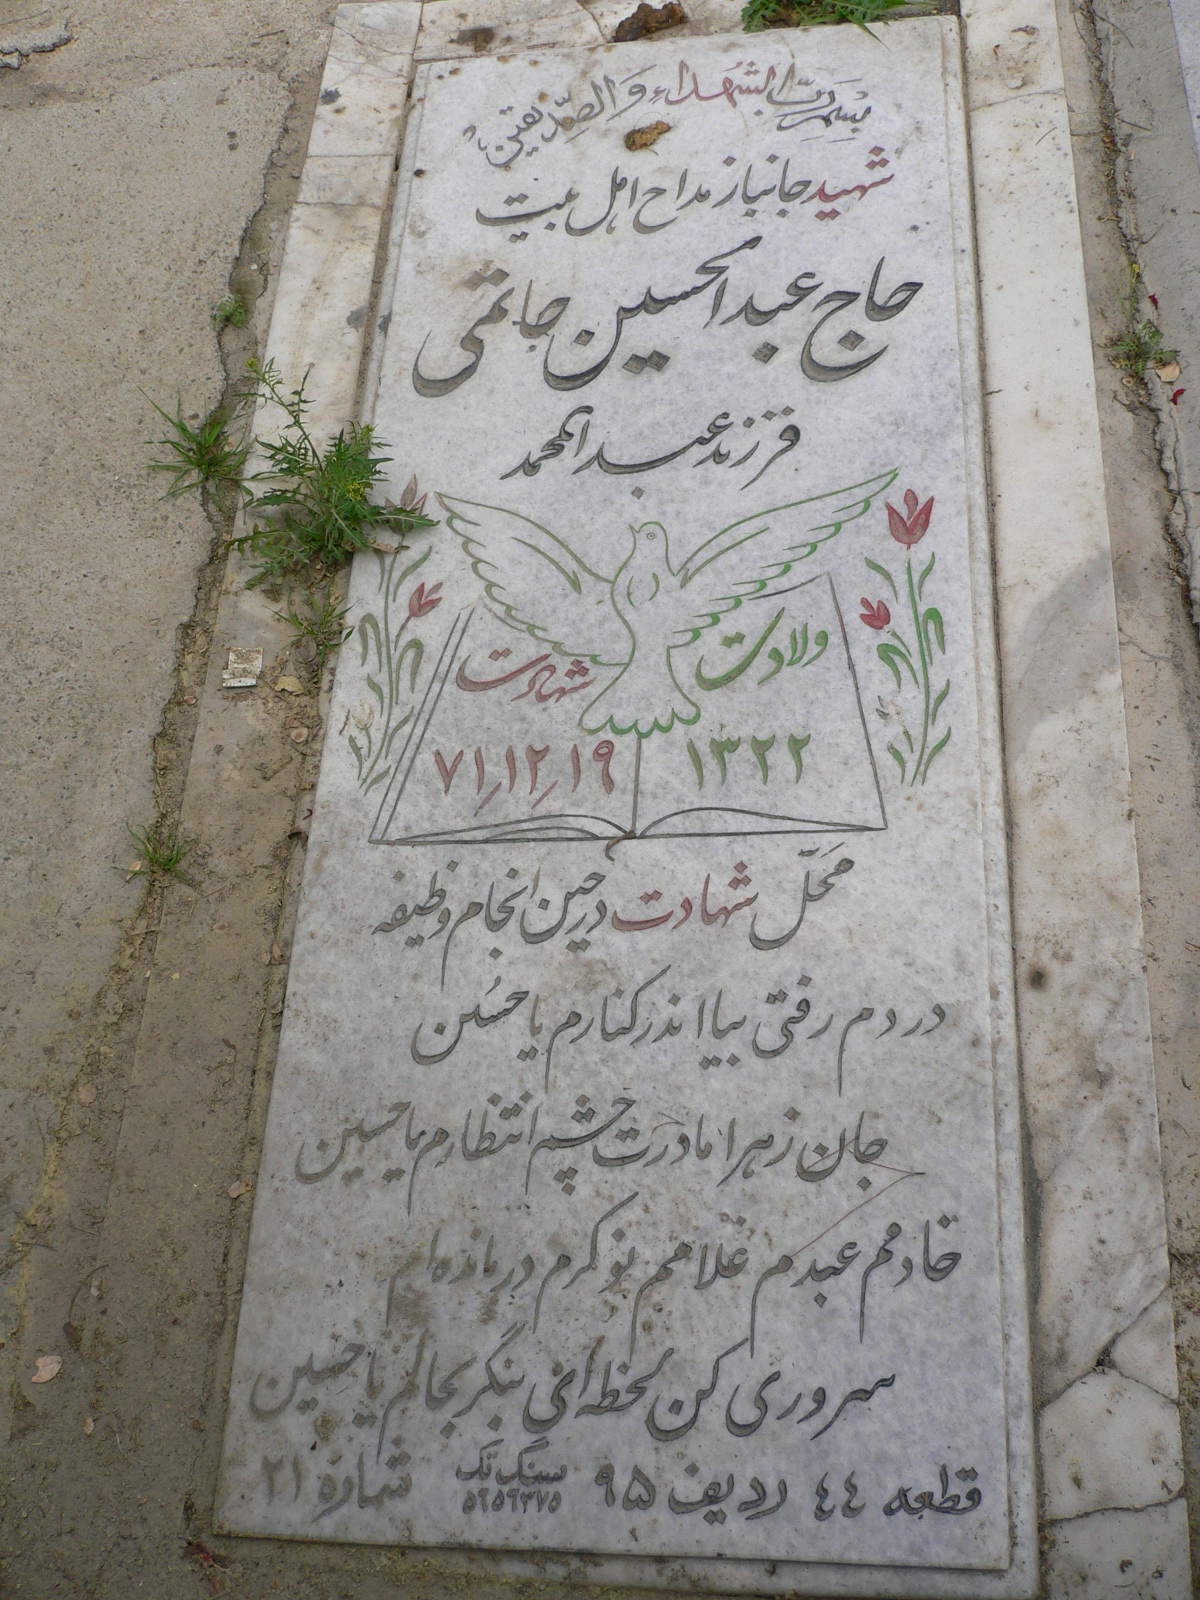 بسم ربّ الشهداء والصّدیقین
شهید جانباز مداح اهل بیت
حاج عبدالحسین حاتمی
فرزند عبدالمحمد
ولادت
۱۳۲۲
شهادت
۷۱٫۱۲٫۱۹
محلّ شهادت در حین انجام وظیفه
در دم رفتی بیا اندر کنارم یا حسین
جان زهرا مادرت چشم انتظارم یا حسین
خادمم عبدم غلامم نوکرم درمانده ام
سروری کن لحظه ای بنگر بحالم یا حسین
قطعه ۴۴ ردیف ۹۵ شماره ۲۱
سنگ تک
۵۶۵۶۳۷۵